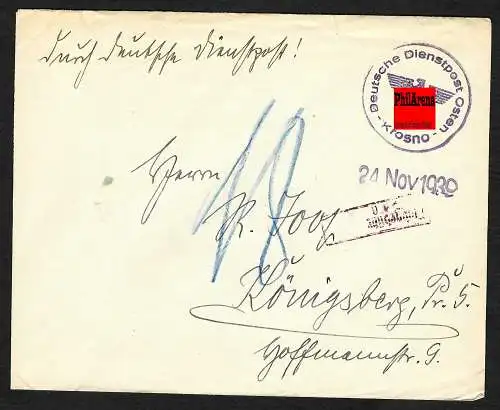 durch deutsche Dienstpost!
Deutsche Dienstpost Osten
- Krosno -
PhilArena
24 Nov 1939
18
Herrn
R. Joos
Königsberg, Pr. 5.
Hoffmannstr. 9.